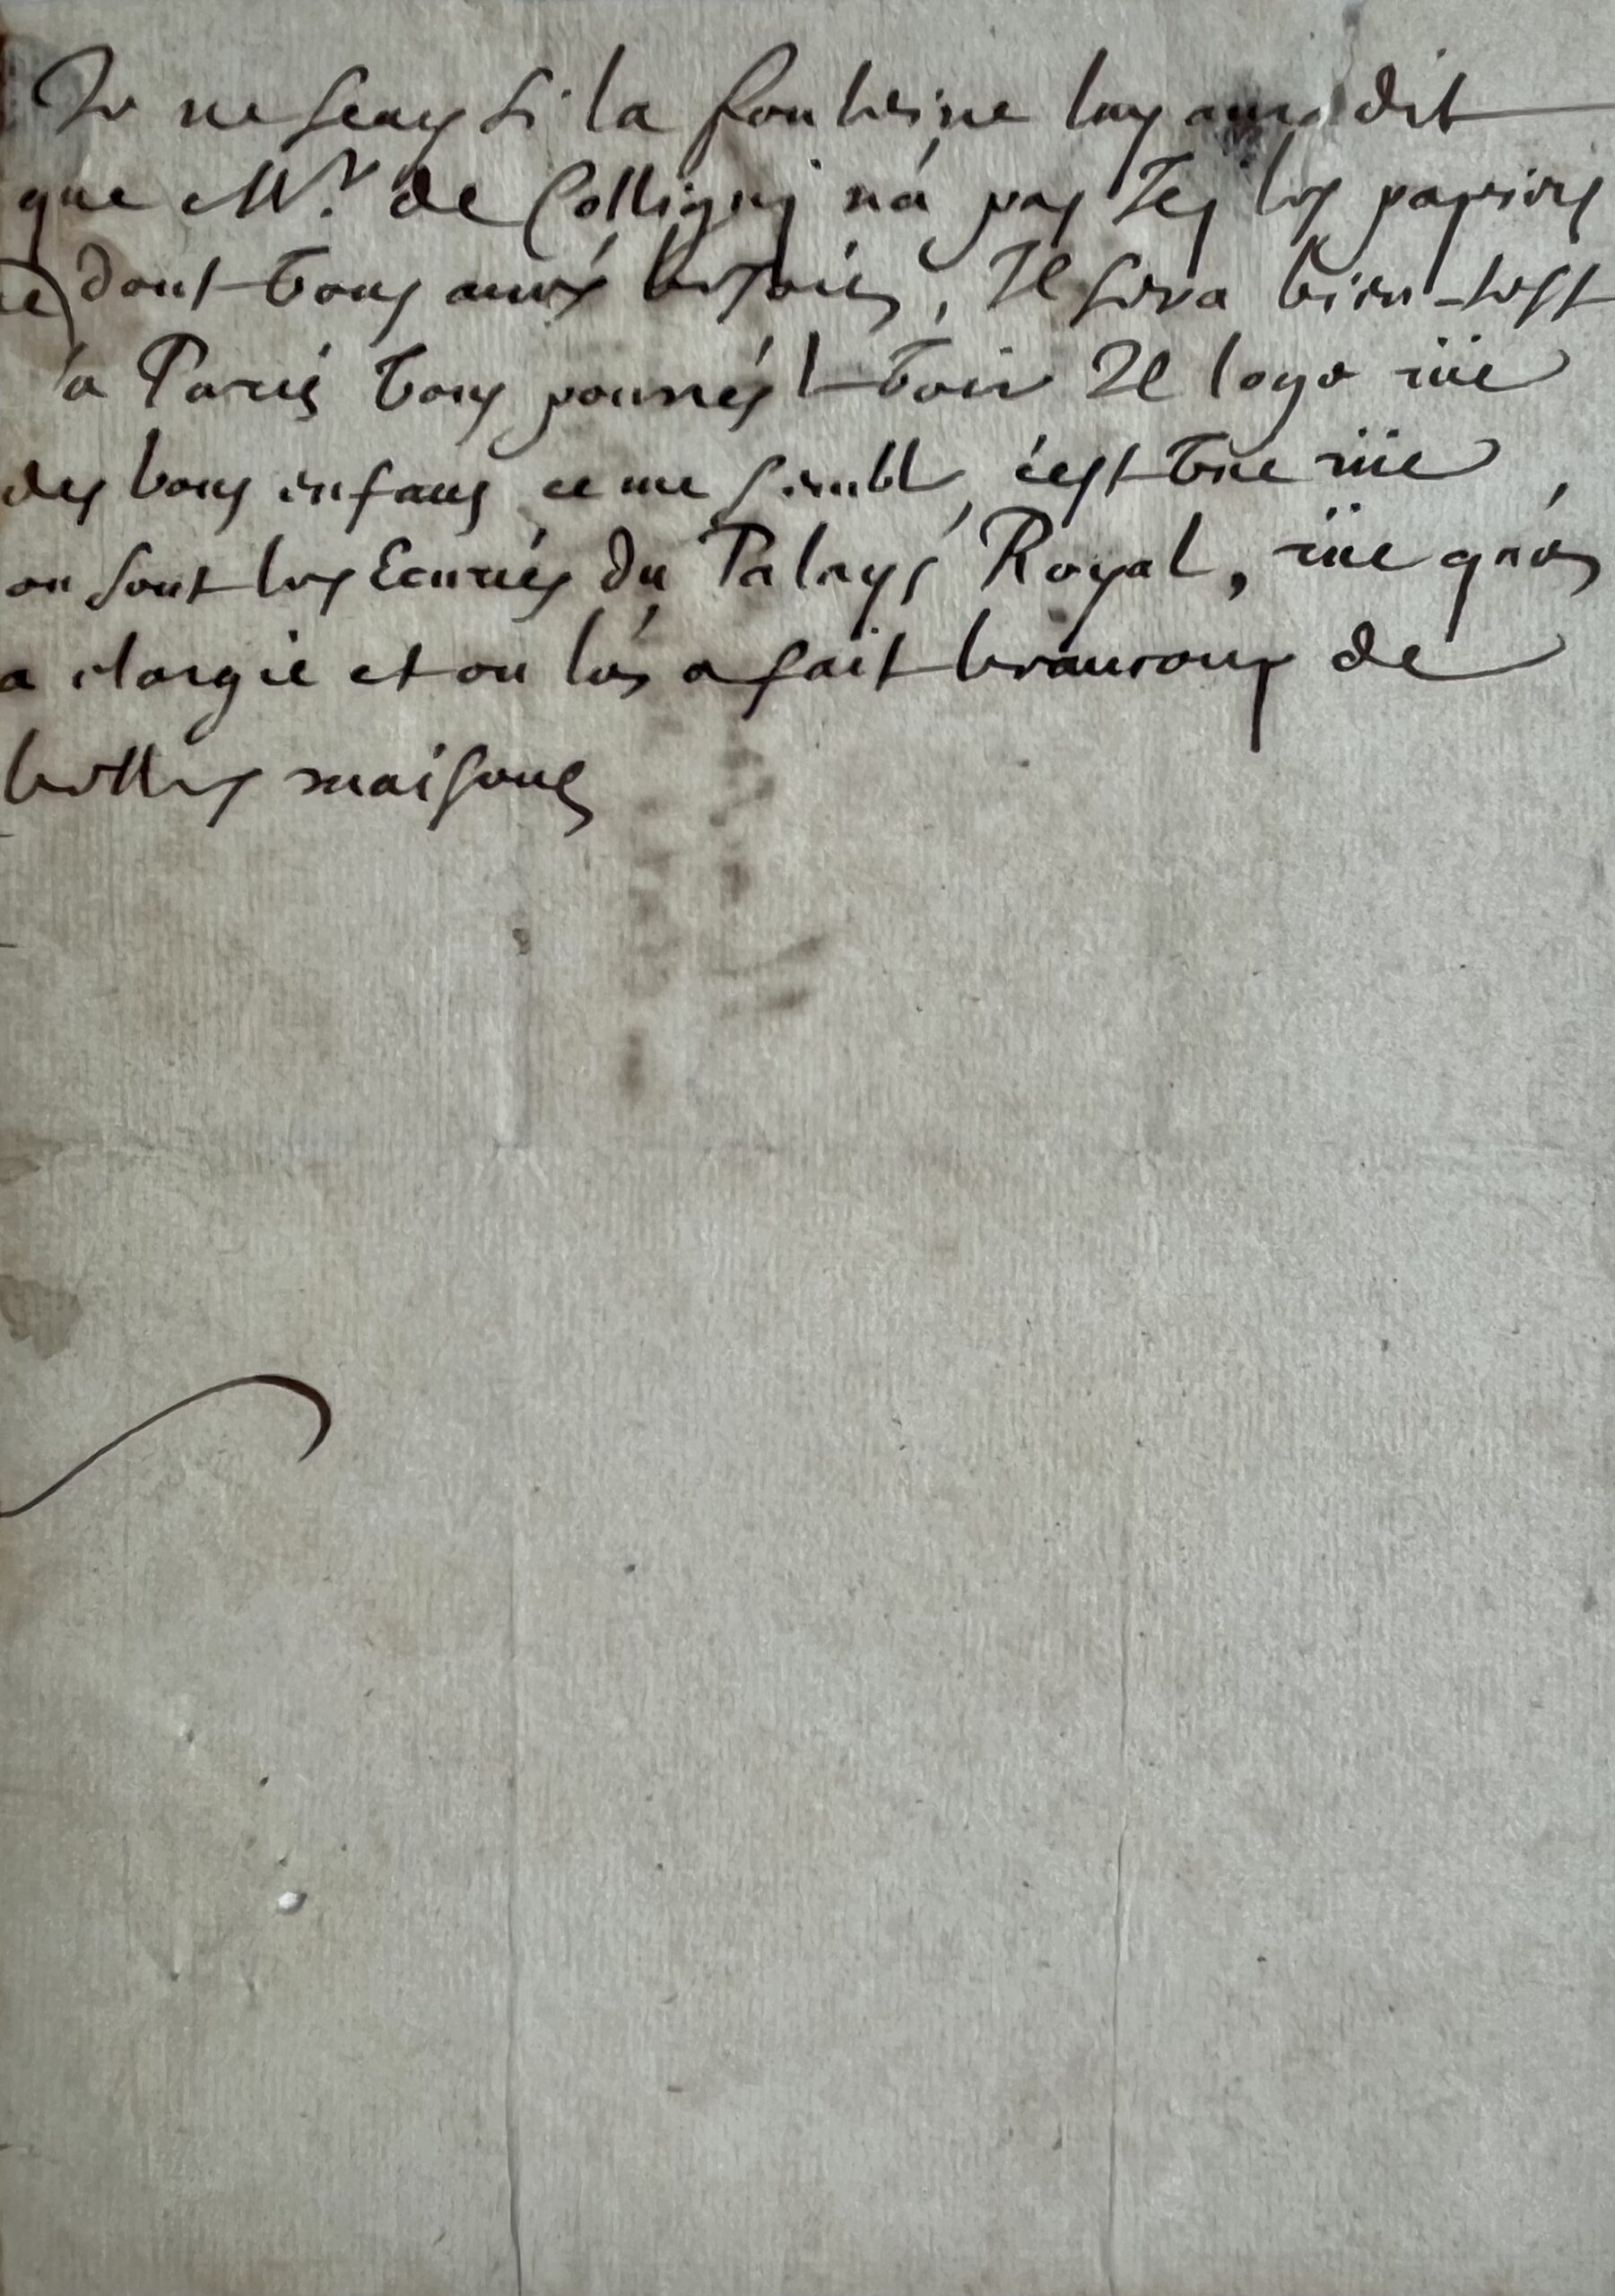 Je ne scay si la fonteine luy aura dit
que Mr. de Colligny n'a pas Icy les papiers
dont vous avés besoin, Il sera bien-tost
a Paris vous pourrés l voir Il loge rüe
des bons enfans ce me semble, c'est vne rüe,
ou sont les Ecuries du Palays Royal, rüe qu'on
a elargie et ou l'on a fait beaucoup de
belles maisons